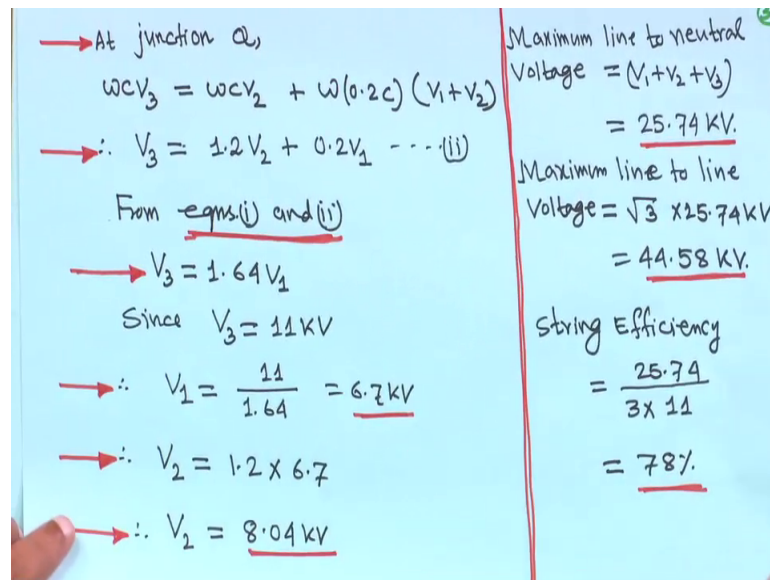 → At junction Q,
ωCV₃ = ωCV₂ + ω(0.2C) (V₁+V₂)
→ ∴ V₃ = 1.2V₂ + 0.2V₁ ----(ii)
From eqns.(i) and (ii)
→ V₃ = 1.64V₁
Since V₃ = 11KV
→ ∴ V₁ = 11/1.64 = 6.7KV
→ ∴ V₂ = 1.2 x 6.7
→ ∴ V₂ = 8.04 KV
Maximum line to neutral
Voltage = (V₁+V₂+V₃)
= 25.74 KV.
Maximum line to line
Voltage = √3 x25.74KV
= 44.58 KV.
String Efficiency
= 25.74/3x 11
= 78%.